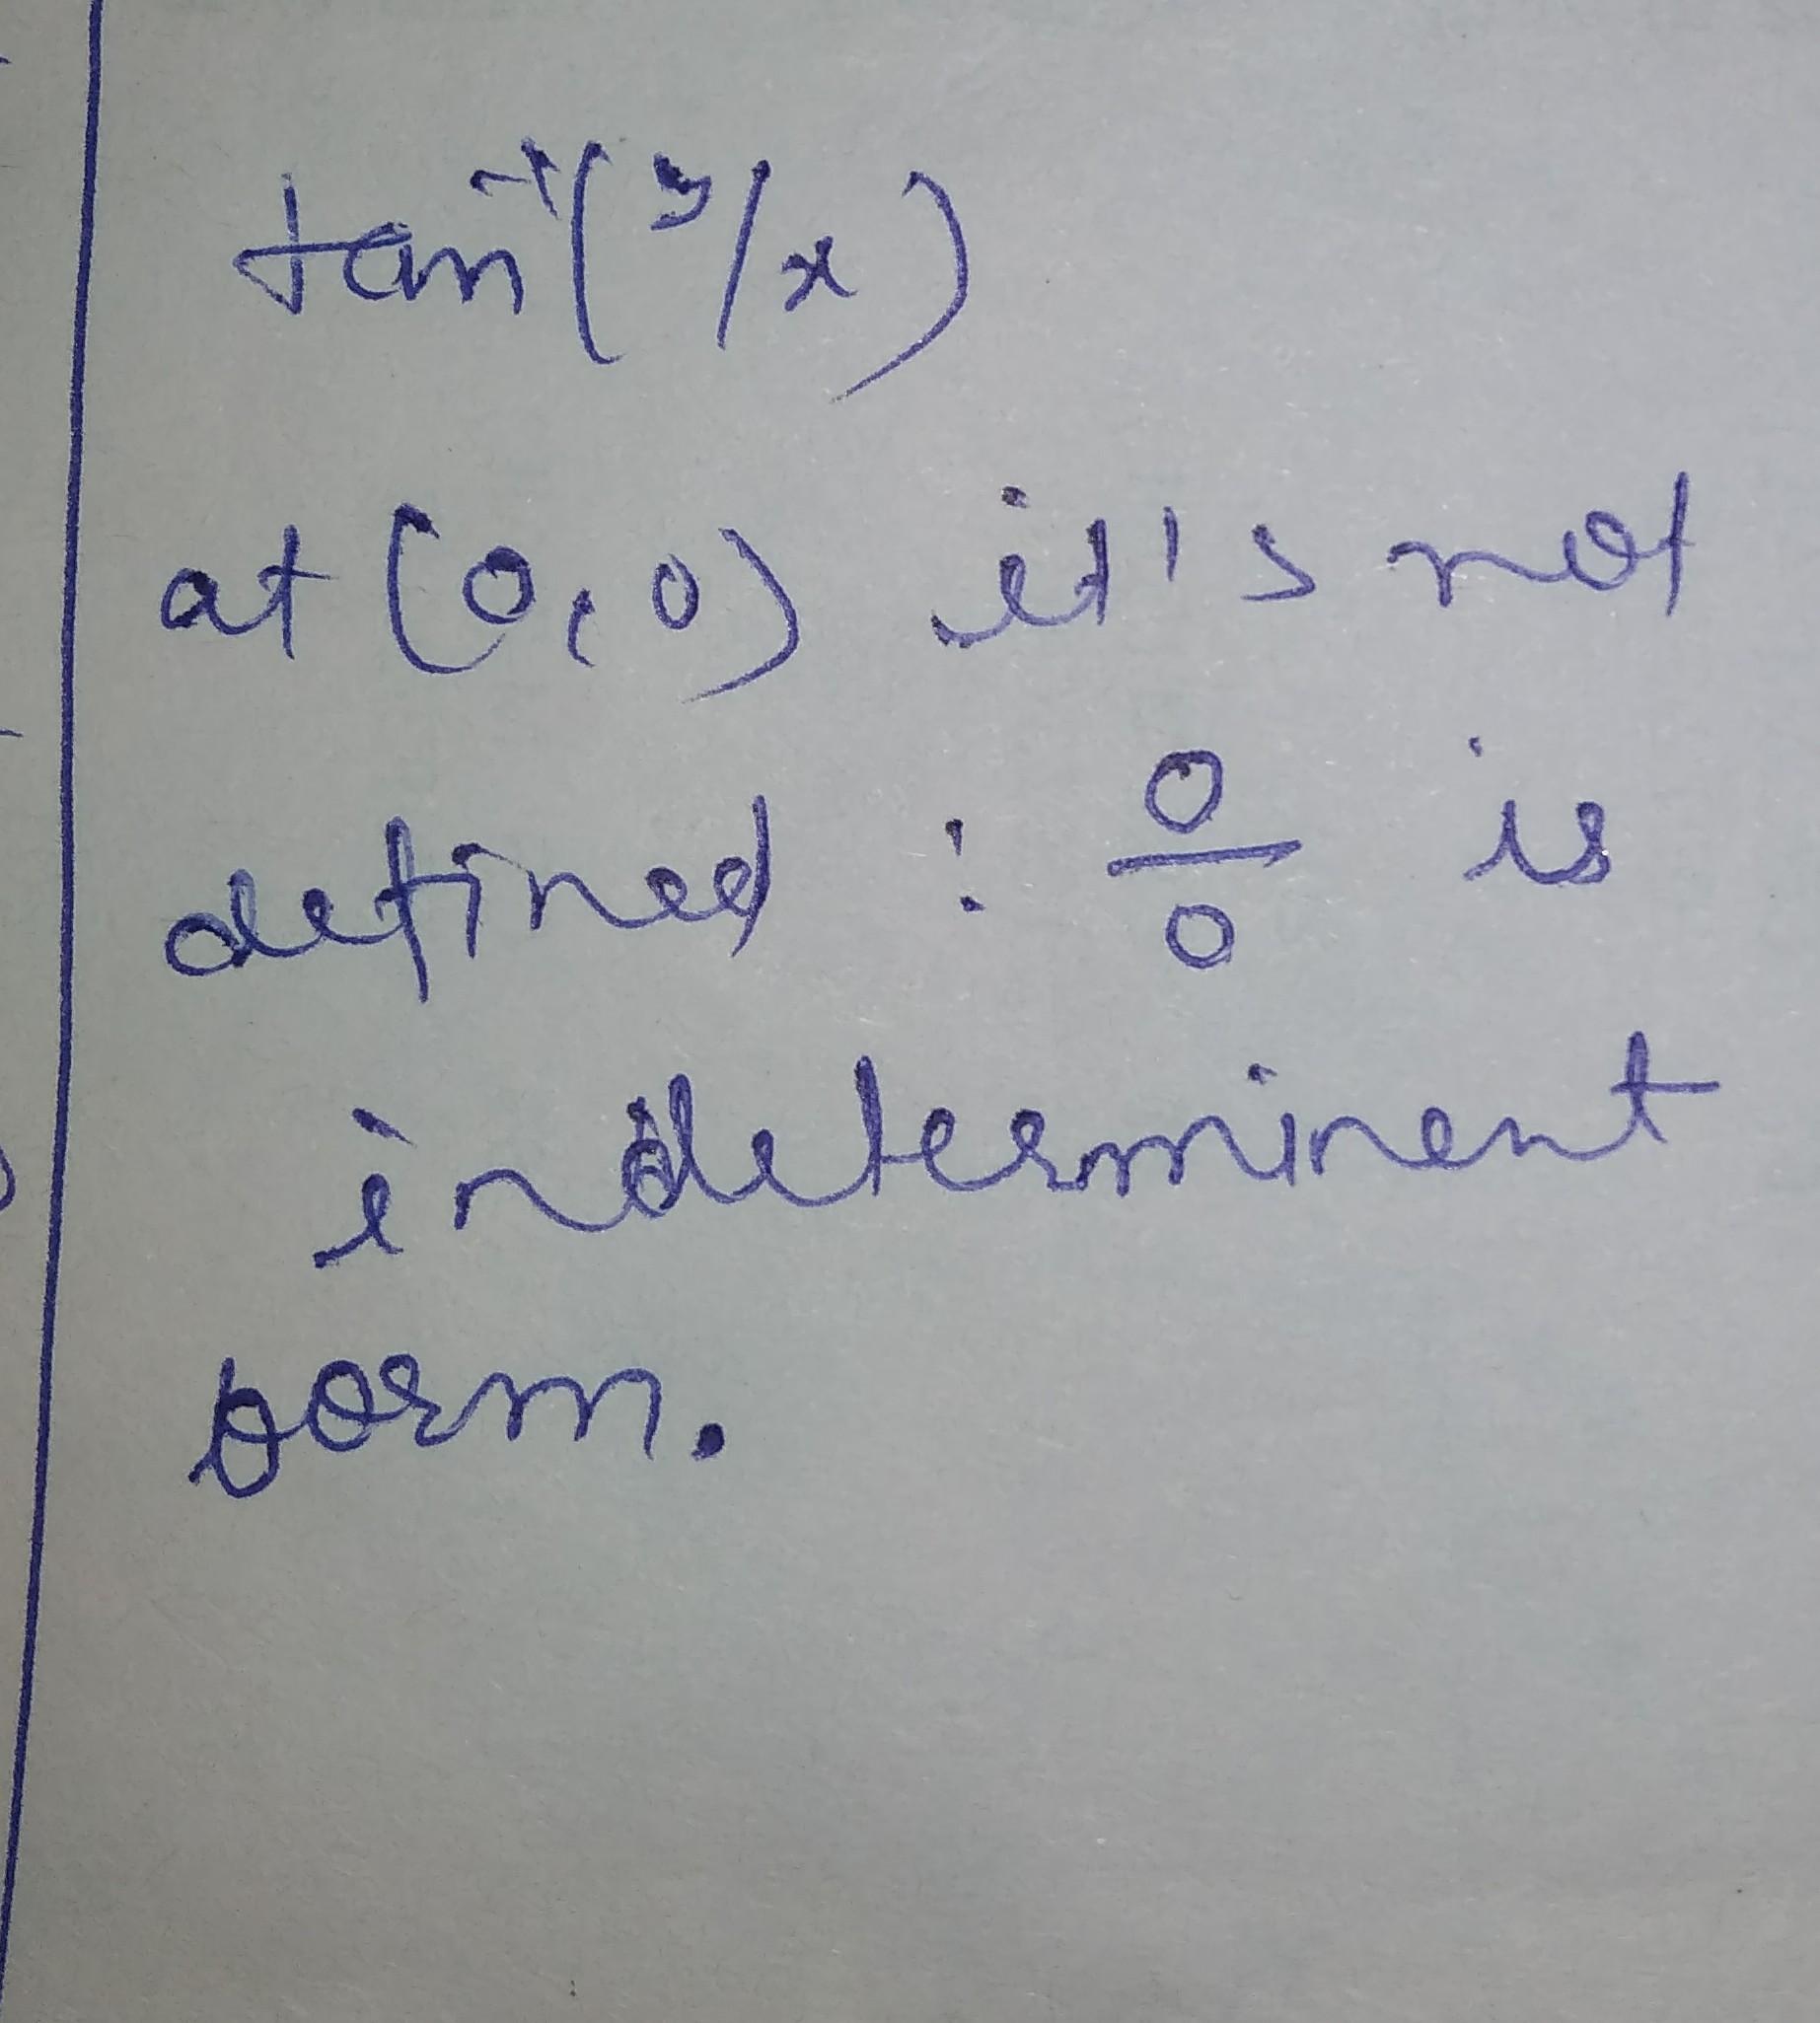 tan⁻¹(y/x)
at (0,0) it's not
defined : 0/0 is
indeterminent
form.